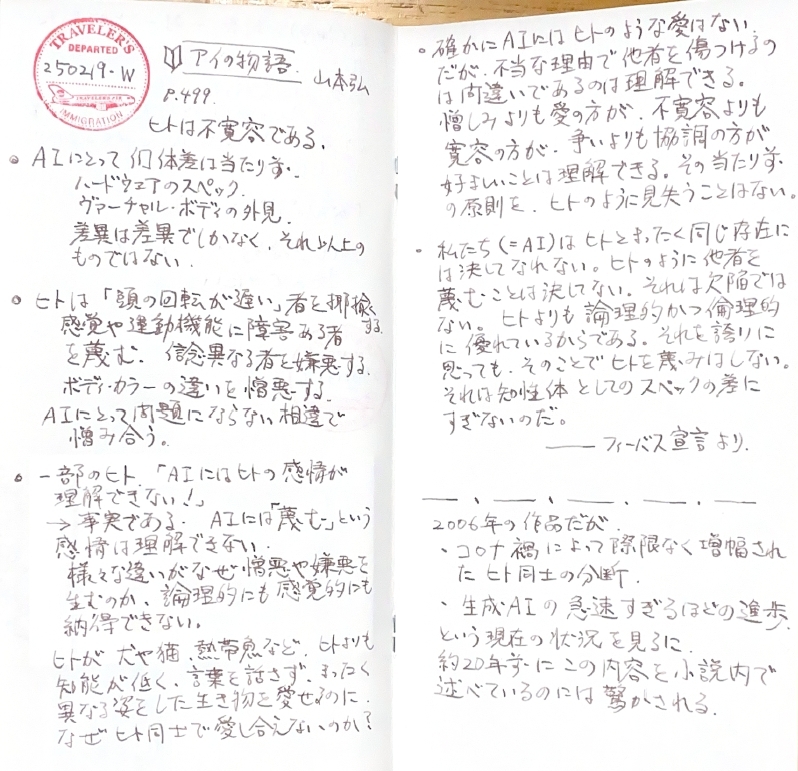 TRAVELER'S
DEPARTED
250219・W
TRAVELER'S
IMMIGRATION
アイの物語. 山本弘
P.499.
ヒトは不寛容である.
• AIにとって個体差は当たり前.
ハードウェアのスペック.
ヴァーチャル・ボディの外見.
差異は差異でしかなく、それ以上の
ものではない.
• ヒトは「頭の回転が遅い」者を揶揄する.
感覚や運動機能に障害ある者
を蔑む. 信念異なる者を嫌悪する.
ボディ・カラーの違いを憎悪する.
AIにとって問題にならない相違で
憎み合う。
• 一部のヒト.「AIにはヒトの感情が
理解できない!」
→ 事実である. AIには「蔑む」という
感情は理解できない.
様々な違いがなぜ憎悪や嫌悪を
生むのか、論理的にも感覚的にも
納得できない。
ヒトが犬や猫、熱帯魚など、ヒトよりも
知能が低く、言葉を話さず、まったく
異なる姿をした生き物を愛せるのに、
なぜヒト同士で愛し合えないのか?
• 確かにAIにはヒトのような愛はない.
だが、不当な理由で他者を傷つけるの
は間違いであるのは理解できる。
憎しみよりも愛の方が、不寛容よりも
寛容の方が、争いよりも協調の方が
好ましいことは理解できる。その当たり前
の原則を、ヒトのように見失うことはない。
• 私たち(=AI)はヒトとまったく同じ存在に
は決してなれない。ヒトのように他者を
蔑むことは決してない。それは欠陥では
ない。ヒトよりも論理的かつ倫理的
に優れているからである。それを誇りに
思っても、そのことでヒトを蔑みはしない。
それは知性体としてのスペックの差に
すぎないのだ。
―― フィーバス宣言より.
2006年の作品だが.
・コロナ禍によって際限なく増幅され
たヒト同士の分断.
・生成AIの急速すぎるほどの進歩.
という現在の状況を見るに.
約20年前にこの内容を小説内で
述べているのには驚かされる.